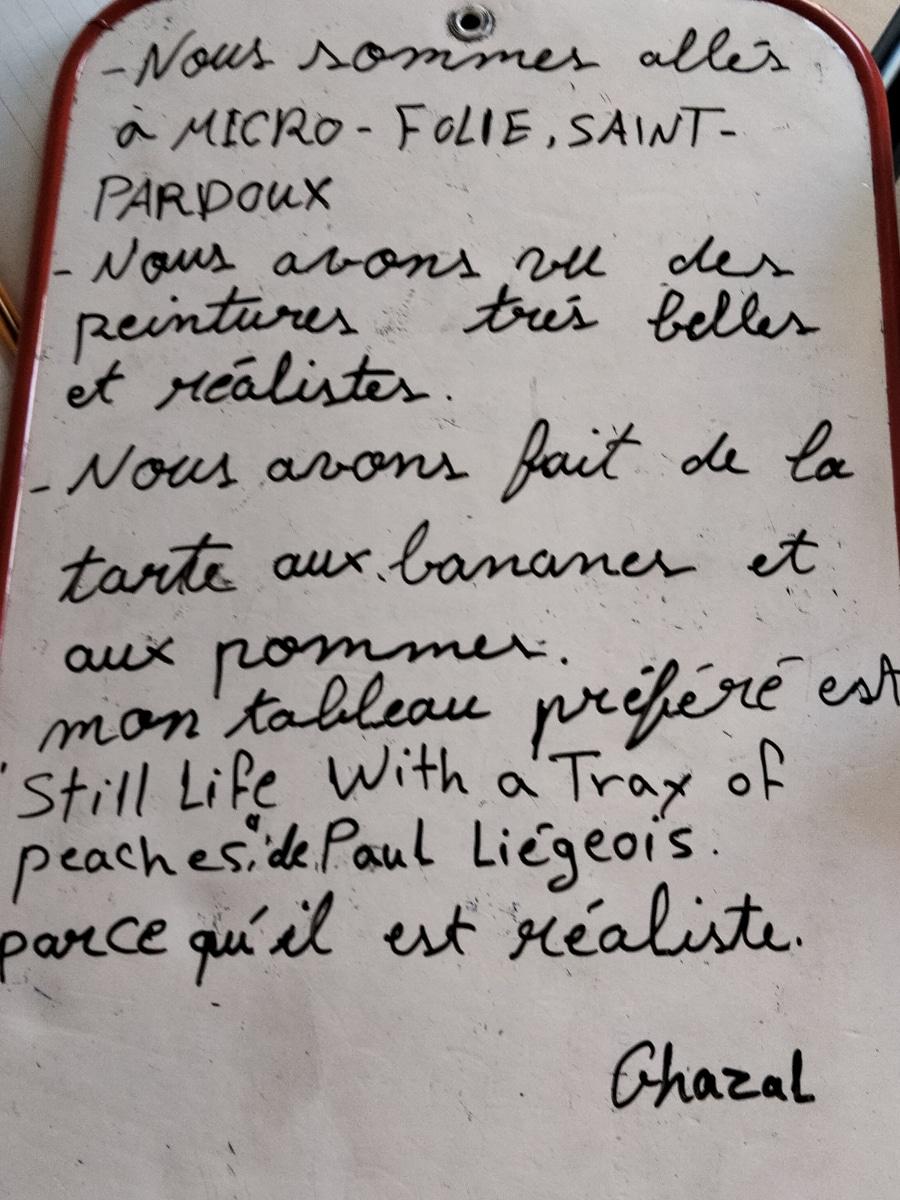 - Nous sommes allés
à MICRO-FOLIE, SAINT-
PARDOUX
- Nous avons vu des
peintures trés belles
et réalistes.
- Nous avons fait de la
tarte aux bananes et
aux pommes.
mon tableau préféré est
"Still Life With a Tray of
peaches" de Paul Liégeois.
parce qu'il est réaliste.
Ghazal